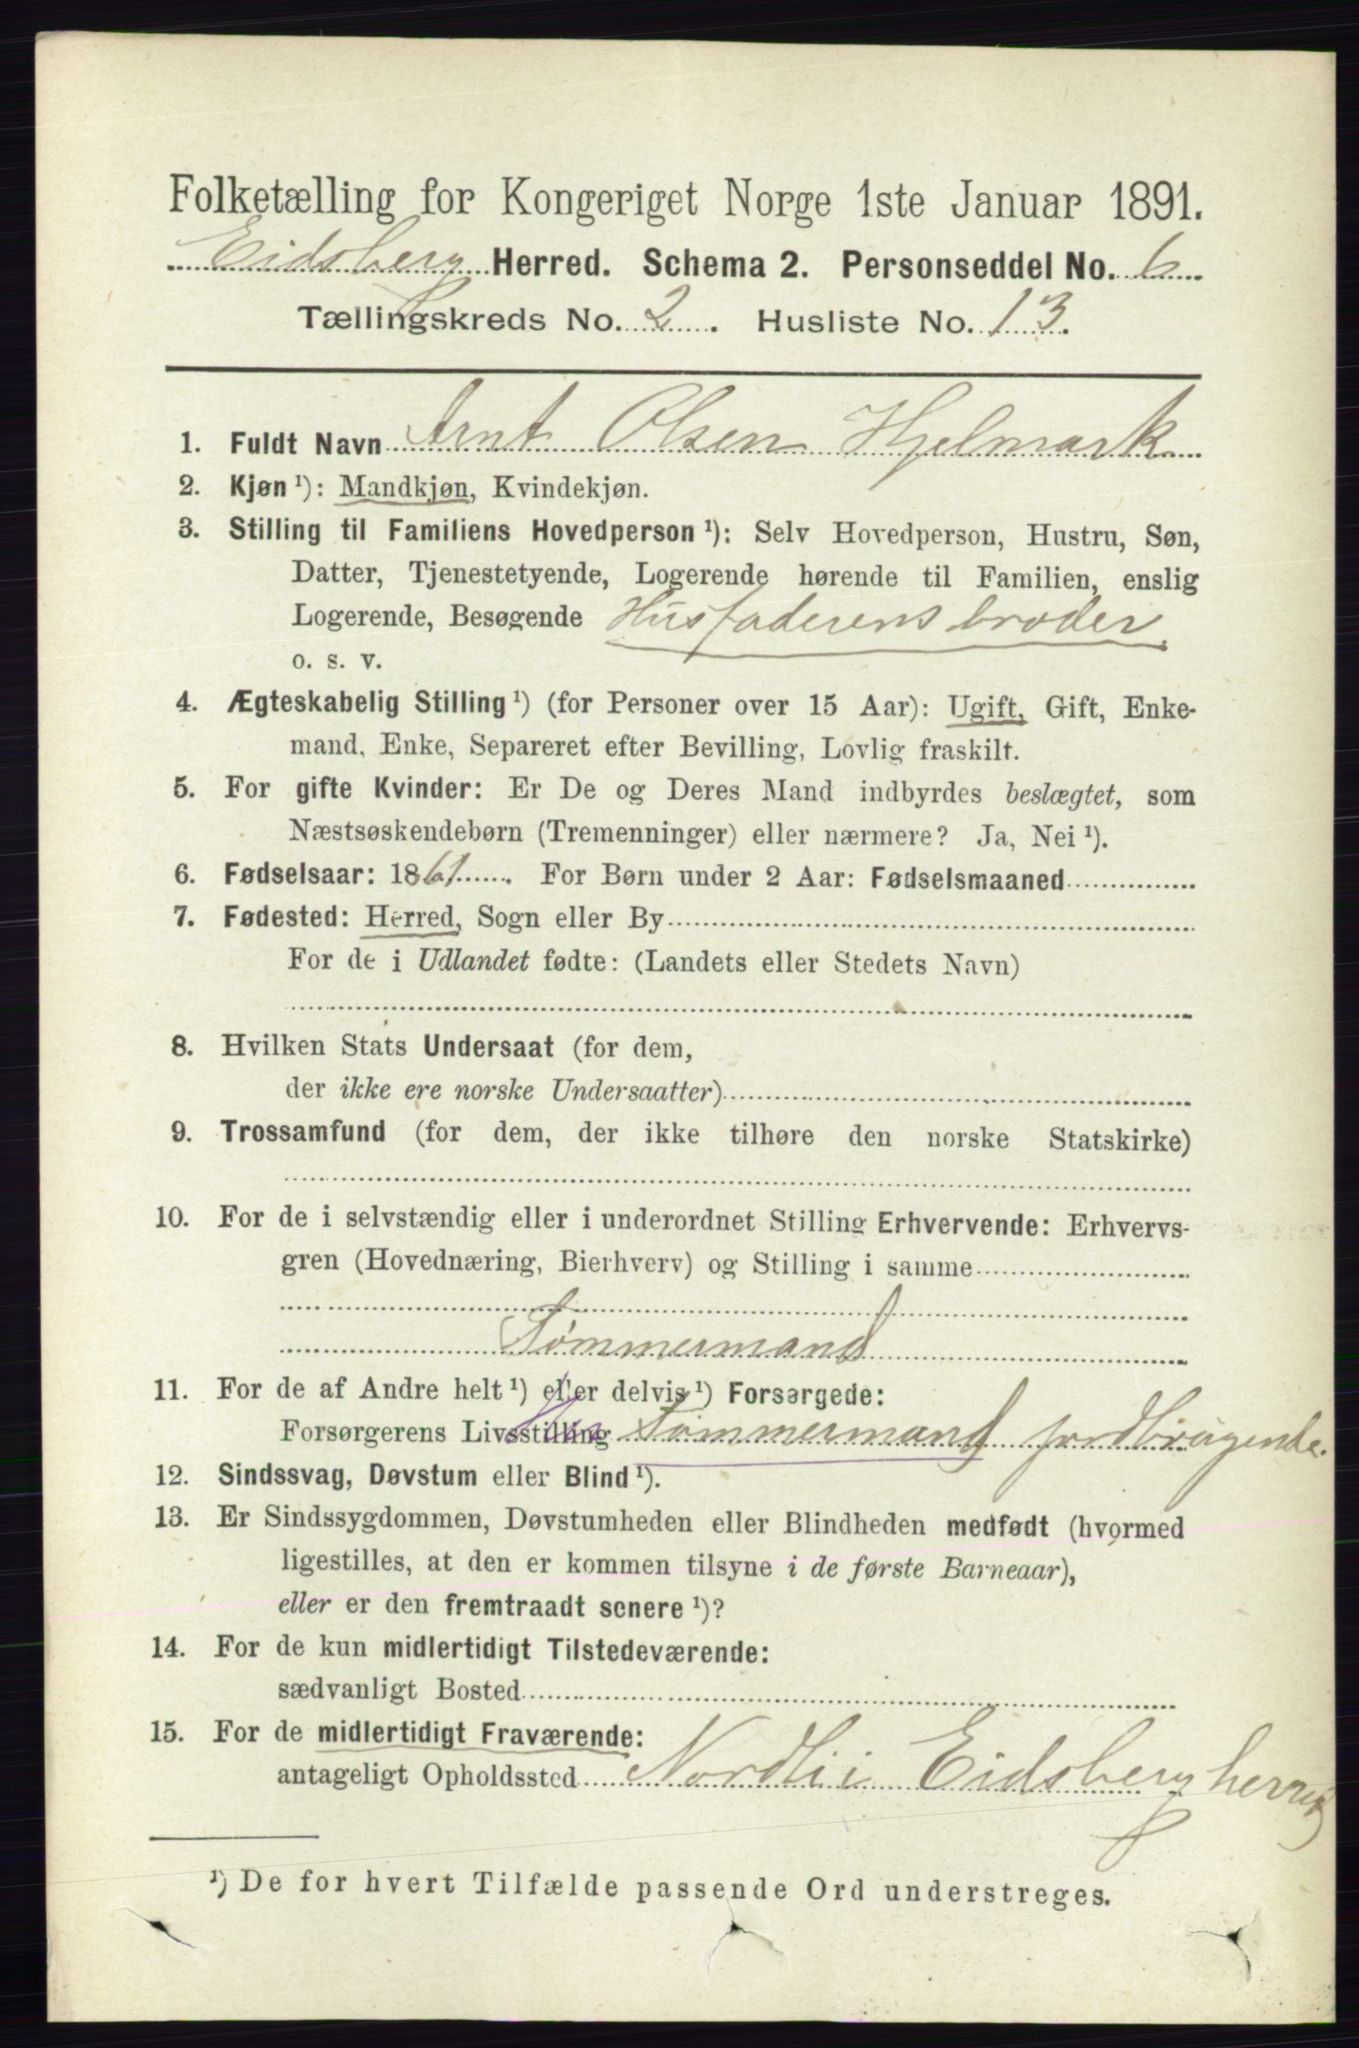 Folketælling for Kongeriget Norge 1ste Januar 1891.
Eidsberg Herred. Schema 2. Personseddel No. 6
Tællingskreds No. 2. Husliste No. 13.
1. Fuldt Navn Arnt Olsen Hjelmark
2. Kjøn ¹): Mandkjøn, Kvindekjøn.
3. Stilling til Familiens Hovedperson ¹): Selv Hovedperson, Hustru, Søn,
Datter, Tjenestetyende, Logerende hørende til Familien, enslig
Logerende, Besøgende Husfaderens broder
o. s. v.
4. Ægteskabelig Stilling ¹) (for Personer over 15 Aar): Ugift, Gift, Enke-
mand, Enke, Separeret efter Bevilling, Lovlig fraskilt.
5. For gifte Kvinder: Er De og Deres Mand indbyrdes beslægtet, som
Næstsøskendebørn (Tremenninger) eller nærmere? Ja, Nei ¹).
6. Fødselsaar: 1861. For Børn under 2 Aar: Fødselsmaaned
7. Fødested: Herred, Sogn eller By
For de i Udlandet fødte: (Landets eller Stedets Navn)
8. Hvilken Stats Undersaat (for dem,
der ikke ere norske Undersaatter)
9. Trossamfund (for dem, der ikke tilhøre den norske Statskirke)
10. For de i selvstændig eller i underordnet Stilling Erhvervende: Erhvervs-
gren (Hovednæring, Bierhverv) og Stilling i samme
Tømmermand
11. For de af Andre helt ¹) eller delvis ¹) Forsørgede:
Forsørgerens Livsstilling Tømmermand jordbrugende.
12. Sindssvag, Døvstum eller Blind ¹).
13. Er Sindssygdommen, Døvstumheden eller Blindheden medfødt (hvormed
ligestilles, at den er kommen tilsyne i de første Barneaar),
eller er den fremtraadt senere ¹)?
14. For de kun midlertidigt Tilstedeværende:
sædvanligt Bosted
15. For de midlertidigt Fraværende:
antageligt Opholdssted Nordli i Eidsberg herred
¹) De for hvert Tilfælde passende Ord understreges.